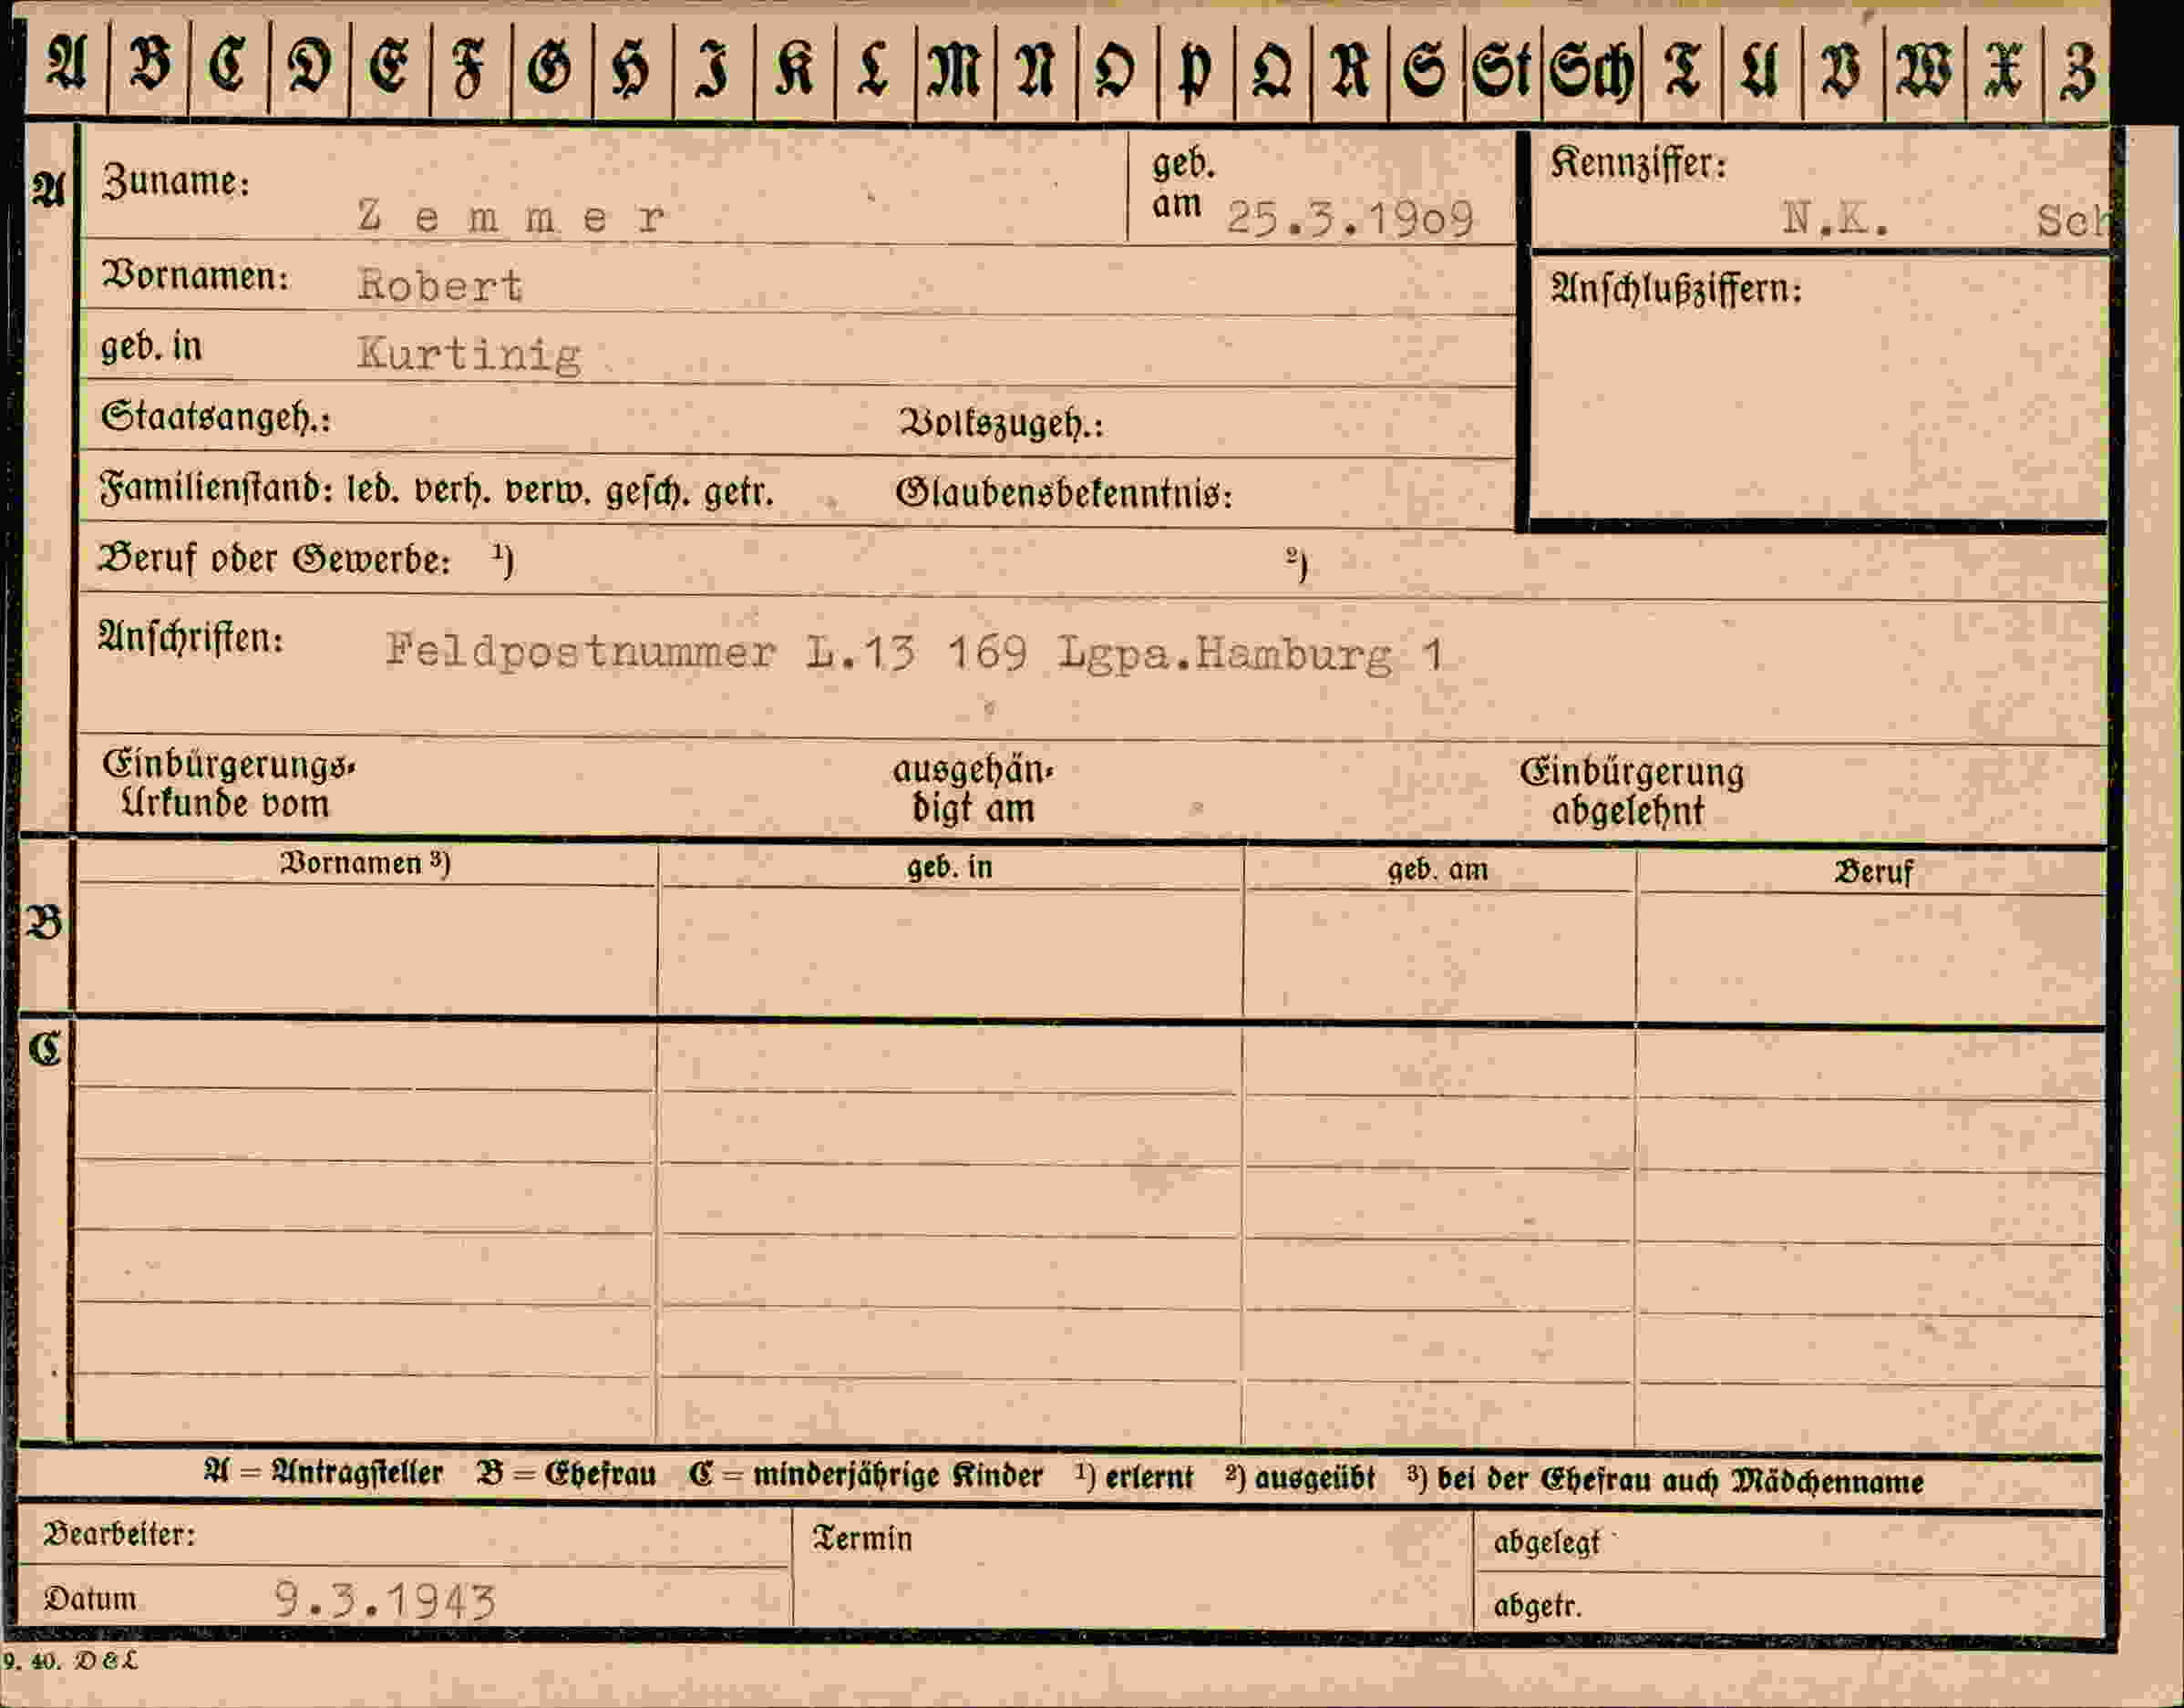 A B C D E F G H I K L M N O P Q R S St Sch T U V W X Z
A Zuname: Zemmer geb. am 25.3.1909 Kennziffer: N.K. Sch
Vornamen: Robert Anschlußziffern:
geb. in Kurtinig
Staatsangeh.: Volkszugeh.:
Familienstand: led. verh. verw. gesch. getr. Glaubensbekenntnis:
Beruf oder Gewerbe: ¹) ²)
Anschriften: Feldpostnummer L.13 169 Lgpa.Hamburg 1
Einbürgerungs- ausgehän- Einbürgerung
Urkunde vom digt am abgelehnt
Vornamen ³) geb. in geb. am Beruf
B
C
A = Antragsteller B = Ehefrau C = minderjährige Kinder ¹) erlernt ²) ausgeübt ³) bei der Ehefrau auch Mädchenname
Bearbeiter: Termin abgelegt
Datum 9.3.1943 abgetr.
9. 40. D & L